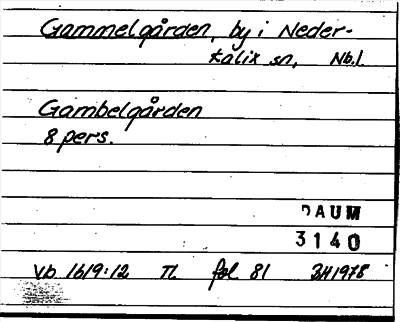 Gammelgården, by i Neder-
kalix sn, Nb.l.
Gambelgården
8 pers.
DAUM
3140
Vb 1619:12 TL fol 81 3H1978